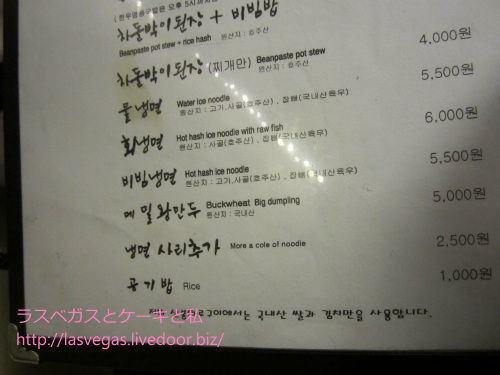 차돌박이된장 + 비빔밥
Beanpaste pot stew + rice hash
원산지 : 호주산
4,000원
차돌박이된장 (찌개만) Beanpaste pot stew
원산지 : 호주산
5,500원
물냉면 Water ice noodle
원산지 : 고기,사골(호주산) , 잡뼈(국내산육우)
6,000원
회냉면 Hot hash ice noodle with raw fish
원산지 : 사골(호주산) , 잡뼈(국내산육우)
5,500원
비빔냉면 Hot hash ice noodle
원산지 : 고기,사골(호주산) , 잡뼈(국내산육우)
5,000원
메밀왕만두 Buckwheat Big dumpling
원산지 : 국내산
2,500원
냉면 사리추가 More a cole of noodle
1,000원
공기밥 Rice
국내산 쌀과 김치만을 사용합니다.
ラスベガスとケーキと私
http://lasvegas.livedoor.biz/